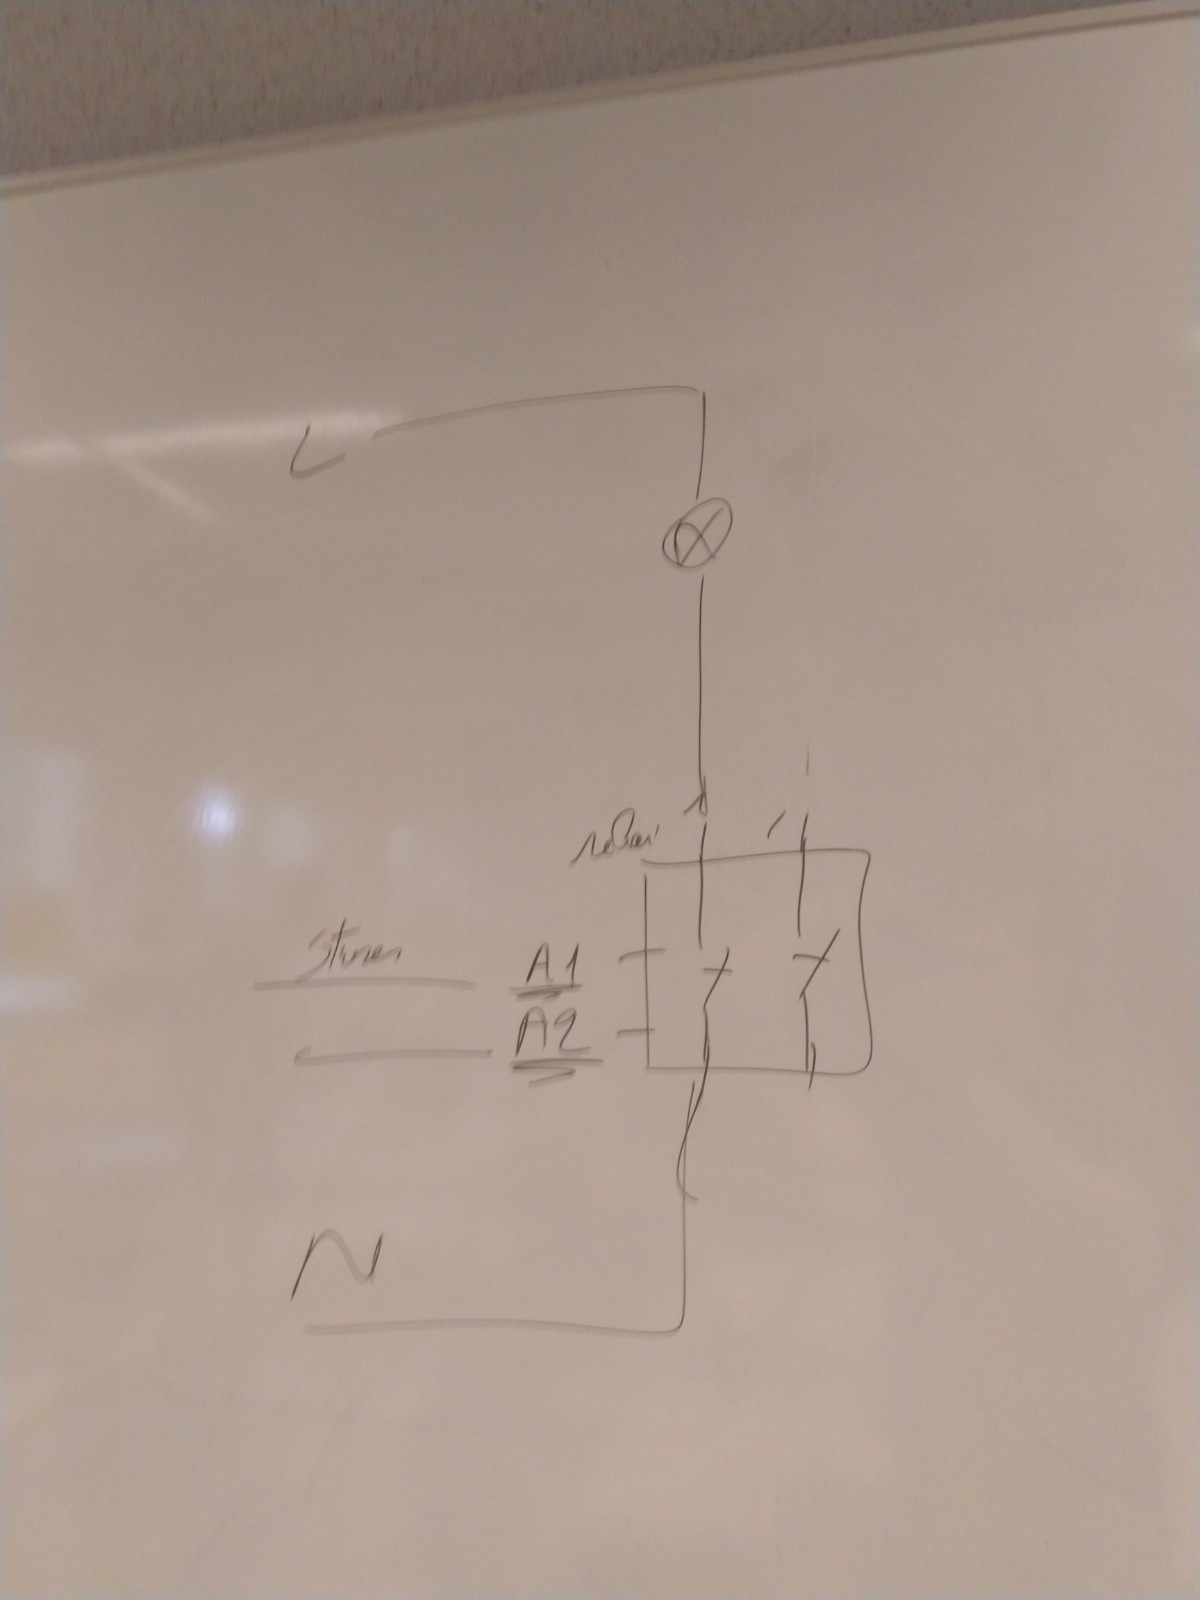 L
relai
Sturen
A1
A2
N